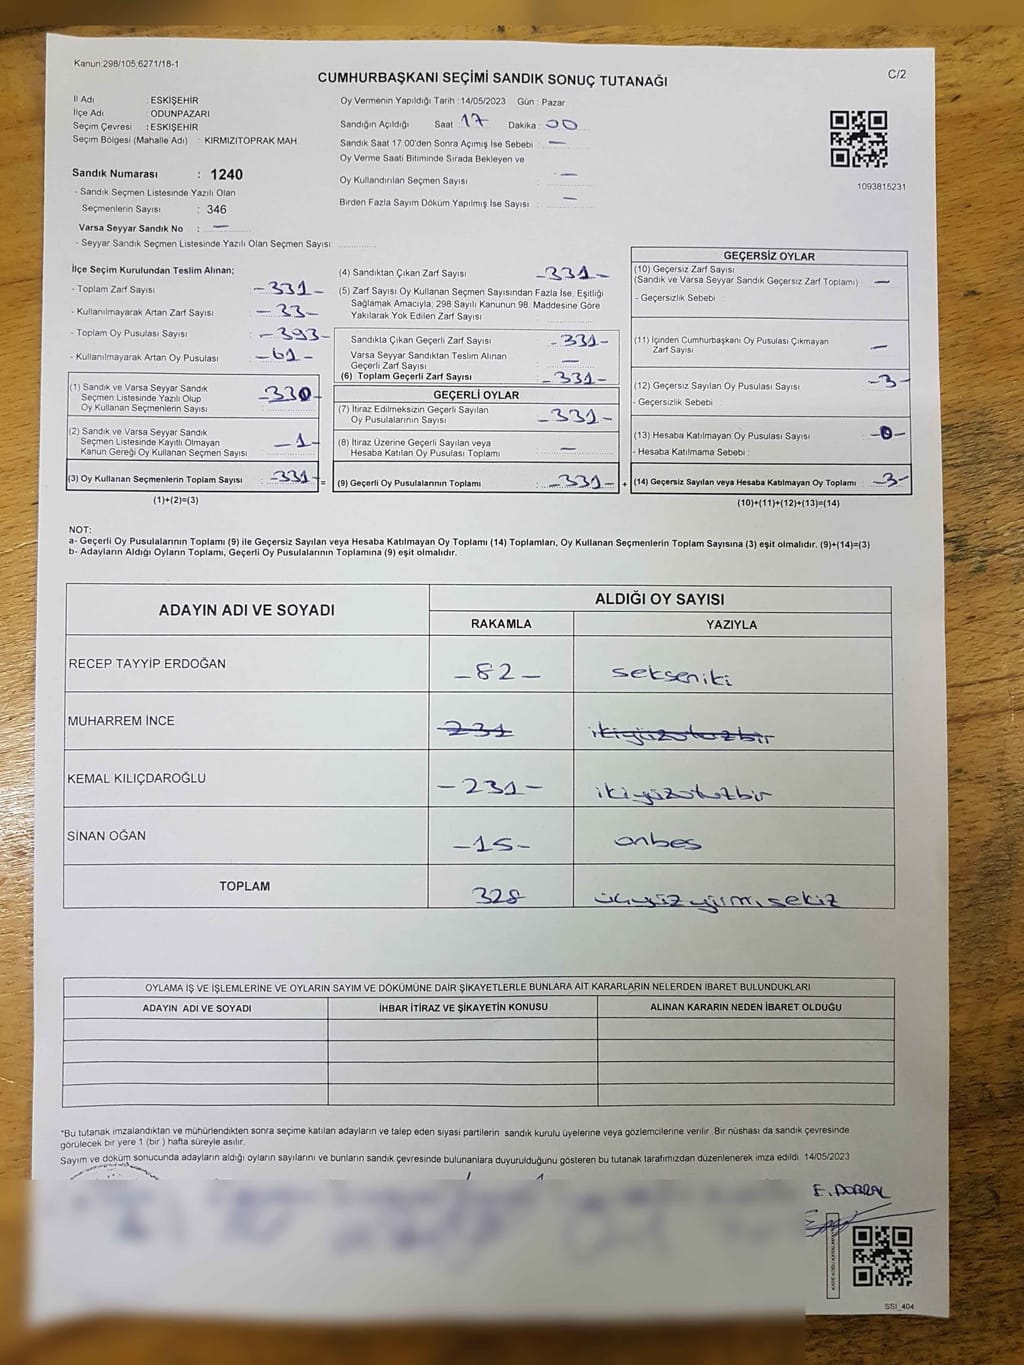 Kanun:298/105,6271/18-1
CUMHURBAŞKANI SEÇİMİ SANDIK SONUÇ TUTANAĞI
C/2
İl Adı : ESKİŞEHİR
İlçe Adı : ODUNPAZARI
Seçim Çevresi : ESKİŞEHİR
Seçim Bölgesi (Mahalle Adı) : KIRMIZITOPRAK MAH
Sandık Numarası : 1240
- Sandık Seçmen Listesinde Yazılı Olan
Seçmenlerin Sayısı : 346
Varsa Seyyar Sandık No : —
- Seyyar Sandık Seçmen Listesinde Yazılı Olan Seçmen Sayısı:
Oy Vermenin Yapıldığı Tarih : 14/05/2023 Gün : Pazar
Sandığın Açıldığı Saat 17 Dakika : 00
Sandık Saat 17.00'den Sonra Açımış İse Sebebi : —
Oy Verme Saati Bitiminde Sırada Bekleyen ve
Oy Kullandırılan Seçmen Sayısı : —
Birden Fazla Sayım Döküm Yapılmış İse Sayısı : —
1093815231
İlçe Seçim Kurulundan Teslim Alınan;
- Toplam Zarf Sayısı -331-
- Kullanılmayarak Artan Zarf Sayısı -33-
- Toplam Oy Pusulası Sayısı -393-
- Kullanılmayarak Artan Oy Pusulası -61-
(1) Sandık ve Varsa Seyyar Sandık
Seçmen Listesinde Yazılı Olup
Oy Kullanan Seçmenlerin Sayısı -330-
(2) Sandık ve Varsa Seyyar Sandık
Seçmen Listesinde Kayıtlı Olmayan
Kanun Gereği Oy Kullanan Seçmen Sayısı -1-
(3) Oy Kullanan Seçmenlerin Toplam Sayısı : -331- =
(1)+(2)=(3)
(4) Sandıktan Çıkan Zarf Sayısı -331-
(5) Zarf Sayısı Oy Kullanan Seçmen Sayısından Fazla İse, Eşitliği
Sağlamak Amacıyla; 298 Sayılı Kanunun 98. Maddesine Göre
Yakılarak Yok Edilen Zarf Sayısı
Sandıkta Çıkan Geçerli Zarf Sayısı -331-
Varsa Seyyar Sandıktan Teslim Alınan
Geçerli Zarf Sayısı —
(6) Toplam Geçerli Zarf Sayısı -331-
GEÇERLİ OYLAR
(7) İtiraz Edilmeksizin Geçerli Sayılan
Oy Pusulalarının Sayısı -331-
(8) İtiraz Üzerine Geçerli Sayılan veya
Hesaba Katılan Oy Pusulası Toplamı —
(9) Geçerli Oy Pusulalarının Toplamı : -331- +
GEÇERSİZ OYLAR
(10) Geçersiz Zarf Sayısı
(Sandık ve Varsa Seyyar Sandık Geçersiz Zarf Toplamı) —
- Geçersizlik Sebebi :
(11) İçinden Cumhurbaşkanı Oy Pusulası Çıkmayan
Zarf Sayısı —
(12) Geçersiz Sayılan Oy Pusulası Sayısı -3-
- Geçersizlik Sebebi :
(13) Hesaba Katılmayan Oy Pusulası Sayısı -0-
- Hesaba Katılmama Sebebi :
(14) Geçersiz Sayılan veya Hesaba Katılmayan Oy Toplamı : -3-
(10)+(11)+(12)+(13)=(14)
NOT:
a- Geçerli Oy Pusulalarının Toplamı (9) ile Geçersiz Sayılan veya Hesaba Katılmayan Oy Toplamı (14) Toplamları, Oy Kullanan Seçmenlerin Toplam Sayısına (3) eşit olmalıdır. (9)+(14)=(3)
b- Adayların Aldığı Oyların Toplamı, Geçerli Oy Pusulalarının Toplamına (9) eşit olmalıdır.
ADAYIN ADI VE SOYADI
ALDIĞI OY SAYISI
RAKAMLA YAZIYLA
RECEP TAYYİP ERDOĞAN -82- sekseniki
MUHARREM İNCE 231 ikiyüzotuzbir
KEMAL KILIÇDAROĞLU -231- ikiyüzotuzbir
SİNAN OĞAN -15- onbeş
TOPLAM 328 üçyüzyirmisekiz
OYLAMA İŞ VE İŞLEMLERİNE VE OYLARIN SAYIM VE DÖKÜMÜNE DAİR ŞİKAYETLERLE BUNLARA AİT KARARLARIN NELERDEN İBARET BULUNDUKLARI
ADAYIN ADI VE SOYADI İHBAR İTİRAZ VE ŞİKAYETİN KONUSU ALINAN KARARIN NEDEN İBARET OLDUĞU
*Bu tutanak imzalandıktan ve mühürlendikten sonra seçime katılan adayların ve talep eden siyasi partilerin sandık kurulu üyelerine veya gözlemcilerine verilir. Bir nüshası da sandık çevresinde
görülecek bir yere 1 (bir) hafta süreyle asılır.
Sayım ve döküm sonucunda adayların aldığı oyların sayılarını ve bunların sandık çevresinde bulunanlara duyurulduğunu gösteren bu tutanak tarafımızdan düzenlenerek imza edildi. 14/05/2023
SSI_404